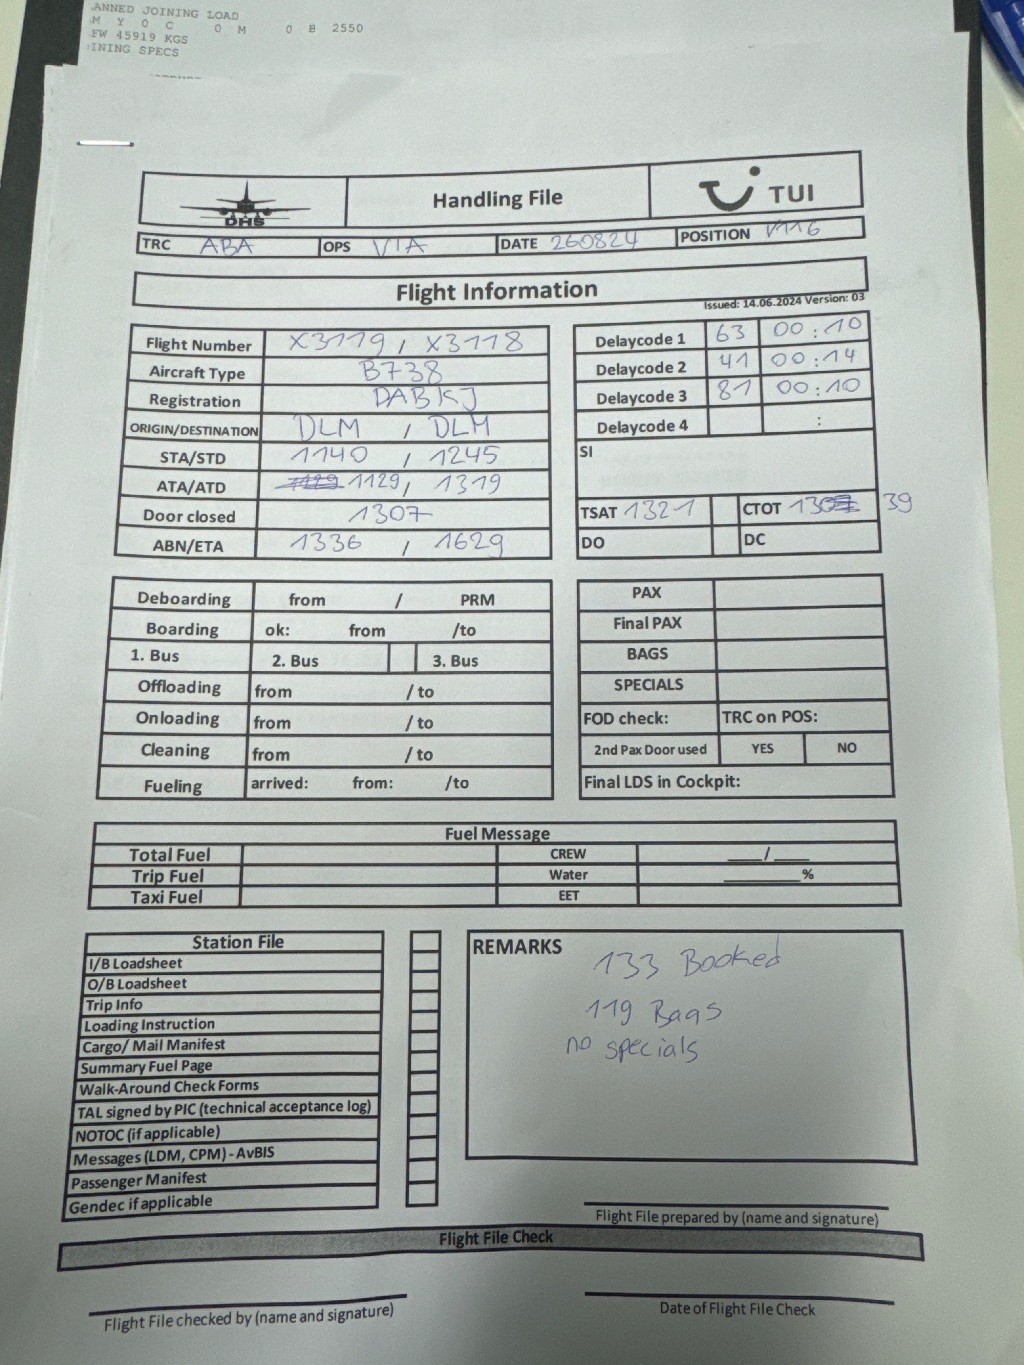 ANNED JOINING LOAD
M Y 0 C 0 M 0 B 2550
FW 45919 KGS
INING SPECS
DHS
Handling File
TUI
TRC ABA OPS VIA DATE 260824 POSITION V116
Flight Information
Issued: 14.06.2024 Version: 03
Flight Number X3119, X3118
Aircraft Type B738
Registration DABKJ
ORIGIN/DESTINATION DLM / DLM
STA/STD 1140 / 1245
ATA/ATD 1129, 1319
Door closed 1307
ABN/ETA 1336 / 1629
Delaycode 1 63 00:10
Delaycode 2 41 00:14
Delaycode 3 81 00:10
Delaycode 4 :
SI
TSAT 1321 CTOT 13 39
DO DC
Deboarding from / PRM
Boarding ok: from /to
1. Bus 2. Bus 3. Bus
Offloading from / to
Onloading from / to
Cleaning from / to
Fueling arrived: from: /to
PAX
Final PAX
BAGS
SPECIALS
FOD check: TRC on POS:
2nd Pax Door used YES NO
Final LDS in Cockpit:
Fuel Message
Total Fuel CREW ___/___
Trip Fuel Water ______%
Taxi Fuel EET
Station File
I/B Loadsheet
O/B Loadsheet
Trip Info
Loading Instruction
Cargo/ Mail Manifest
Summary Fuel Page
Walk-Around Check Forms
TAL signed by PIC (technical acceptance log)
NOTOC (if applicable)
Messages (LDM, CPM) - AvBIS
Passenger Manifest
Gendec if applicable
REMARKS
133 Booked
119 Bags
no specials
Flight File prepared by (name and signature)
Flight File Check
Flight File checked by (name and signature)
Date of Flight File Check